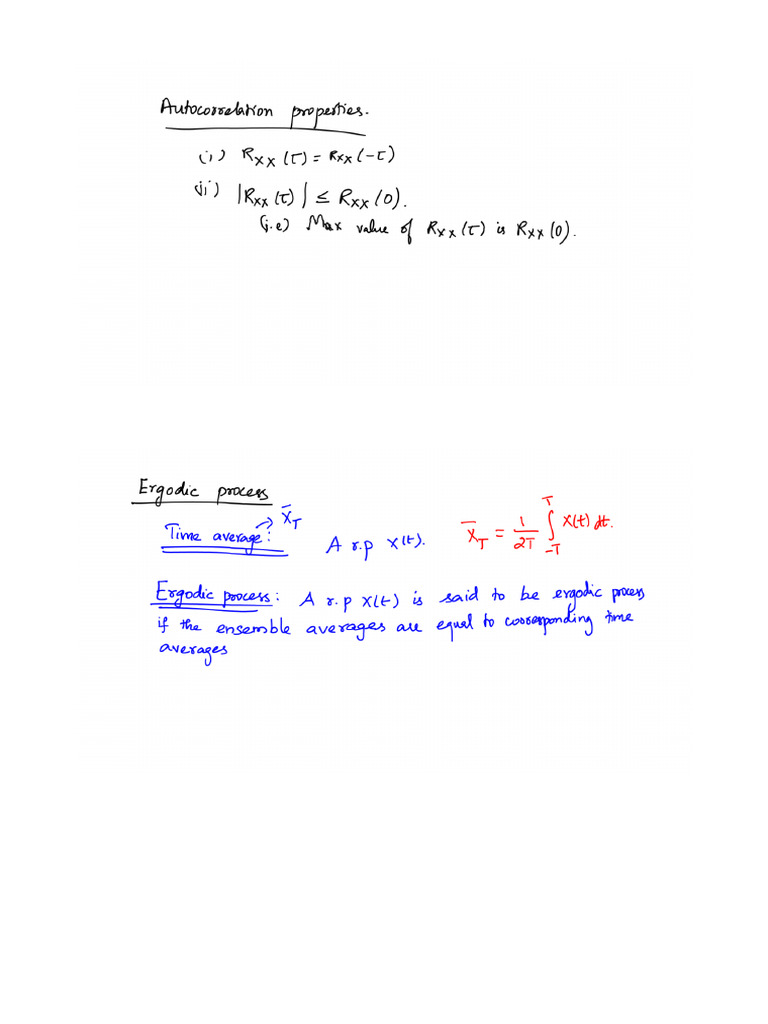 Autocorrelation properties.
(i) Rxx(τ) = Rxx(-τ)
(ii) |Rxx(τ)| ≤ Rxx(0).
(i.e) Max value of Rxx(τ) is Rxx(0).
Ergodic process
Time average: → X̄_T A r.p X(t). X̄_T = 1/2T ∫_{-T}^{T} X(t) dt.
Ergodic process: A r.p X(t) is said to be ergodic process
if the ensemble averages are equal to corresponding time
averages